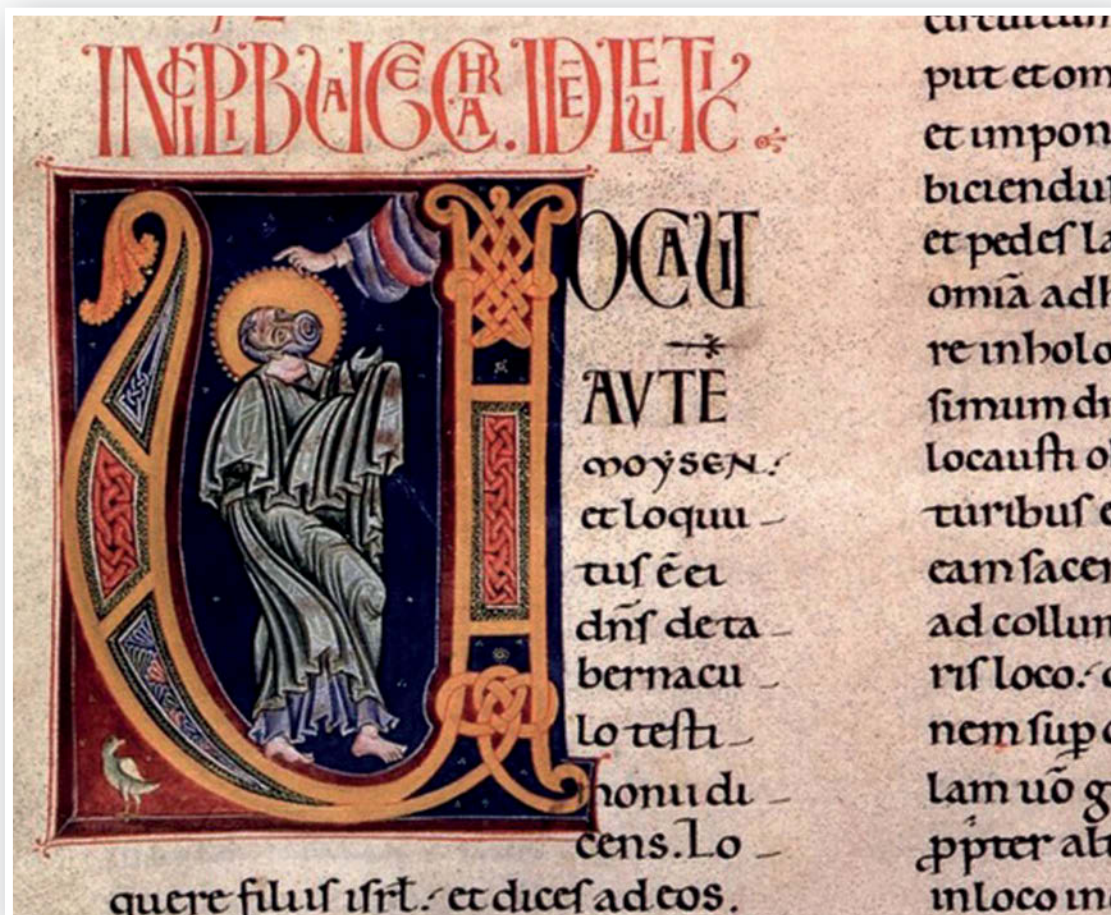 INCIPI BUAGECHRA. ID Ē LEUITIC
UOCAUIT
AVTE
MOYSEN:
et loquu
tuſ ē ei
dn̄ſ de ta
bernacu
lo teſti
monii di
cens. Lo
quere filiiſ iſrl̄: et diceſ ad eos.
put et om
et impon
biciendu
et pedeſ la
omiā adh
re in holo
ſimum d
locauſti o
turibuſ
eam ſacer
ad collum
riſ loco:
nem ſup
lam uō g
pp̄ter alt
in loco in